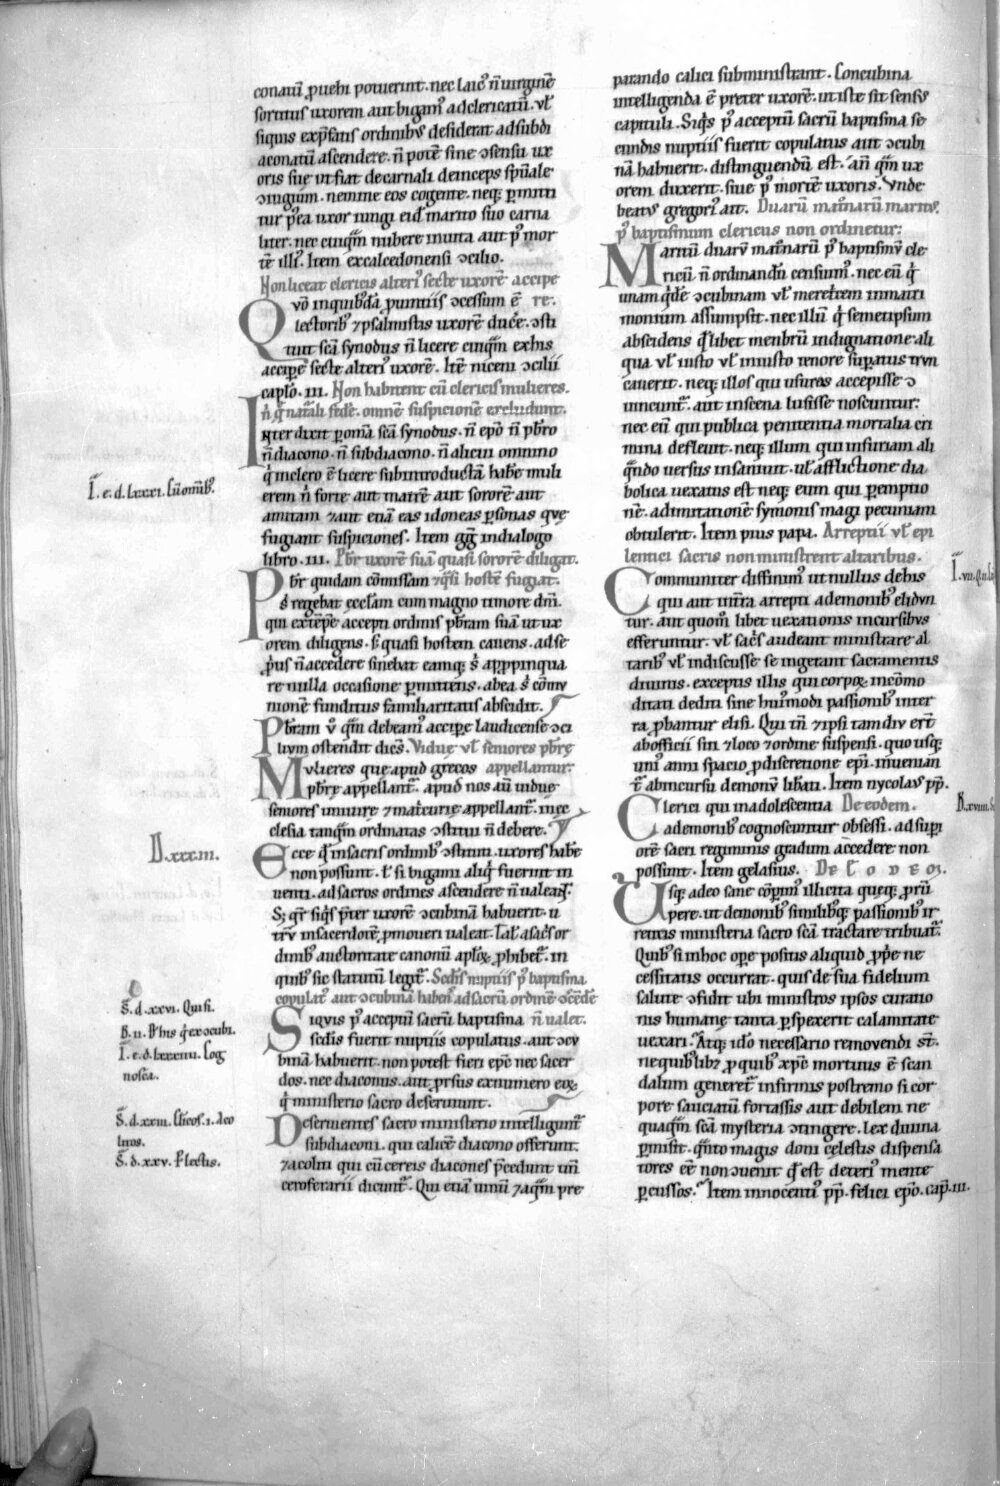 conatū ꝓuehi potuerint. nec laicꝰ ñ uirginē
sortitus uxorem aut bigamꝰ ad clericatū. ul̃
siquis exp̃satis ordinibꝰ desiderat ad subdi
aconatū ascendere. ñ potẽ sine ɔsensu ux
oris sue ut fiat de carnali deinceps sp̃uale
ɔiugium. nemine eos cogente. neqꝫ ꝑmitti
tur pꝰea uxor iungi eidꝰ marito suo carna
liter. nec cuiqͣm nubere inuita aut pꝰ mor
tẽ illiꝰ. Item ex calcedonensi ɔcilio.
Non liceat clericis alteriꝰ secte uxorẽ accipe
Quō in quibꝰdā ꝓuintiis ɔcessum ẽ re
lectoribꝰ ⁊ psalmistis uxorẽ ducẽ. ɔsti
tuit scā synodus ñ licere cuiqͣm ex his
accipẽ secte alteriꝰ uxorẽ. Itẽ niceni ɔcilii
capl̃o. iii. Non habitent cū clericis mulieres.
ñ qͥ nat̃ali fedẽ. omnẽ suspicionẽ excludunt.
Interdixit ꝑ omīa scā synodus. ñ ep̃o ñ p̃bro
ñ diacono. ñ subdiacono. ñ alicui omnino
qͥ in clero ẽ licere subintroductā habẽ muli
erem ñ forte aut matrẽ aut sororẽ aut
amitam ⁊ aut etiā eas idoneas ꝑsonas que
fugiant suspiciones. Item gg̃ in dialogo
libro. iii. Pb̃r uxorẽ suā quasi sororẽ diligat.
Pb̃r quidam cōmissam ⁊qͣsi hostẽ fugiat.
sꝰ regebat eccl̃am cum magno timore dñi.
qui ex tẽpẽ accepti ordinis pb̃ram suā ut ux
orem diligens. sꝫ quasi hostem cauens. ad se
ꝓpius ñ accedere sinebat eamqꝫ sꝰ apropinqua
re nulla occasione ꝑmittens. ab ea sꝰ cōmu
nionẽ funditus familiaritatis abscidit.
Pb̃ram ꝟ qͣm debeamꝰ accipẽ laudicense ɔci
lium ostendit dicēs. Vidue ul̃ seniores p̃brę
Mulieres que apud grecos appellantur.
p̃brę appellantᷣ. apud nos aū uidue
seniores uniuire ⁊ matricurie appellantᷣ. in ec
clesia tanqͣm ordinatas ɔstitui ñ debere.
Ecce qͥ in sacris ordinibꝰ ɔstitutī. uxores habẽ
non possunt. Sꝫ si bigami aliqͥ fuerint in
uenti. ad sacros ordines ascendere ñ ualeant.
Sꝫ qͣr siqͥs p̃ter uxorẽ ɔcubinā habuerit. u
trū in sacerdotẽ ꝓmoueri ualeat.
dinibꝰ auctoritate canonū apl̃oꝝ ꝓhibetᷣ. in
quibꝰ sic statutū legitᷣ. Scd̃is nuptiis pꝰ baptisma
copulatꝰ aut ɔcubinā habens ad sacrū ordinẽ ɔcedẽ
Siquis pꝰ acceptū sacrū baptisma ñ ualet.
scd̃is fuerit nuptiis copulatus. aut ɔcu
binā habuerit. non potest fieri ep̃c nec sacer
dos. nec diaconus. aut ꝓrsus ex numero eoꝝ
qͥ ministerio sacro deseruiunt.
Deseruientes sacro ministerio intelliguntᷣ
subdiaconi. qui calicẽ diacono offerunt.
⁊ acoliti qui cū cereis diacones p̃cedunt. un̄
ceroferarii dicuntᷣ. Qui etiā uinū ⁊ aqͣm pre
parando calici subministrant. Concubina
intelligenda ẽ preter uxorẽ. ut iste sit sensꝰ
capituli. Siqͥs pꝰ acceptū sacrū baptisma se
cundis nuptiis fuerit copulatus aut ɔcubi
nā habuerit. distinguendū est. an̄ qͣm ux
orem duxerit. siue pꝰ mortẽ uxoris. Vnde
beatꝰ gregoriꝰ ait. Duarū matronarū maritꝰ.
pꝰ baptismum clericus non ordinetur.
Maritū duarū matronarū pꝰ baptismū cle
ricū ñ ordinandū censuimꝰ. nec eū qͥ
unam qͥdẽ ɔcubinam ul̃ meretricem in matri
monium assumpsit. nec illū qͥ semetipsum
abscidens qͦlibet menbrū indignatione ali
qua ul̃ iusto ul̃ iniusto tenore supatus trun
cauerit. neqꝫ illos qui usuras accepisse ɔ
uincuntᷣ. aut in scena lusisse noscuntur.
nec eū qui publica penitentia mortalia cri
mina defleuit. neqꝫ illum qui in furiam ali
qͣndo uersus insaniuit. ul̃ afflictione dia
bolica uexatus est neqꝫ eum qui ꝑ emptio
nē. ad imitationē symonis magi pecuniam
obtulerit. Item pius papa. Arreptii ul̃ epi
lentici sacris non ministrent altaribus.
Communiter diffinimꝰ ut nullus de his
qui aut in terra arrepti a demonibꝰ elidun
tur. aut quom̃ libet uexationis incursibus
efferuntur. ul̃ sacͥs audeant ministrare al
taribꝰ ul̃ indiscusse se ingerant sacramentis
diuinis. exceptis illis qui corpoꝝ incōmo
ditati dediti sine huiꝰmodi passionibꝰ in ter
ra ꝓbantur elisi. Qui tn̄ ⁊ ipsi tam diu erūt
ab officii sui ⁊ loco ⁊ ordine suspensi. quo usqꝫ
uniꝰ anni spacio ꝑ discretionē ep̃i. inueniant᷒
ab incursu demonū lib̃ati. Item nycolaꝰ pp̃.
Clerici qui in adolescentia De eodem.
a demonibꝰ cognoscuntur obsessi. ad supi
orẽ sacri regiminis gradum accedere non
possunt. Item gelasius. De Eodem.
Usqꝫ adeo sane cōꝑimꝰ illicita queqꝫ ꝓrū
pere. ut demonibꝰ similibqꝫ passionibꝰ ir
retitis ministeria sacro scā tractare tribuatᷣ.
Quibꝰ si in hoc oꝑe positis aliquid ꝓp̃e ne
cessitatis occurrat. quis de sua fidelium
salute ɔfidit ubi ministros ipsos curatio
nis humanę tanta ꝑspexerit calamitate
uexari. Atqꝫ idō necessario remouendi st̄.
ne quibꝰlibꝫ ꝓ quibꝰ xp̃c mortuus ẽ scan
dalum generetᷣ infirmis postremo si cor
pore sauciatū fortassis aut debilem ne
quaqͣm scā mysteria ɔtingere. lex diuina
ꝑmisit. qͣnto magis doni celestis dispensa
tores eẽ non ɔuenit qͥ est deteriꝰ mente
ꝑcussos. Item innocentiꝰ pp̃. felici ep̃o. cap̃. iii.
I. e. d. lxxxi. Cū omībꝰ.
D. xxxiii.
S. d. xxvi. Quisi.
B. ii. p̃bis qͥ ex ɔcubi.
I. e. d. lxxxiiii. Cog
nosca.
S. d. xxiii. Clicos. i. deo
lnos.
S. d. xxv. P̃lectis.